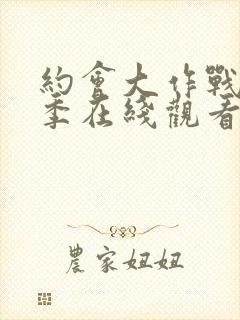 約會大作戰
季在綫觀看
農家妞妞